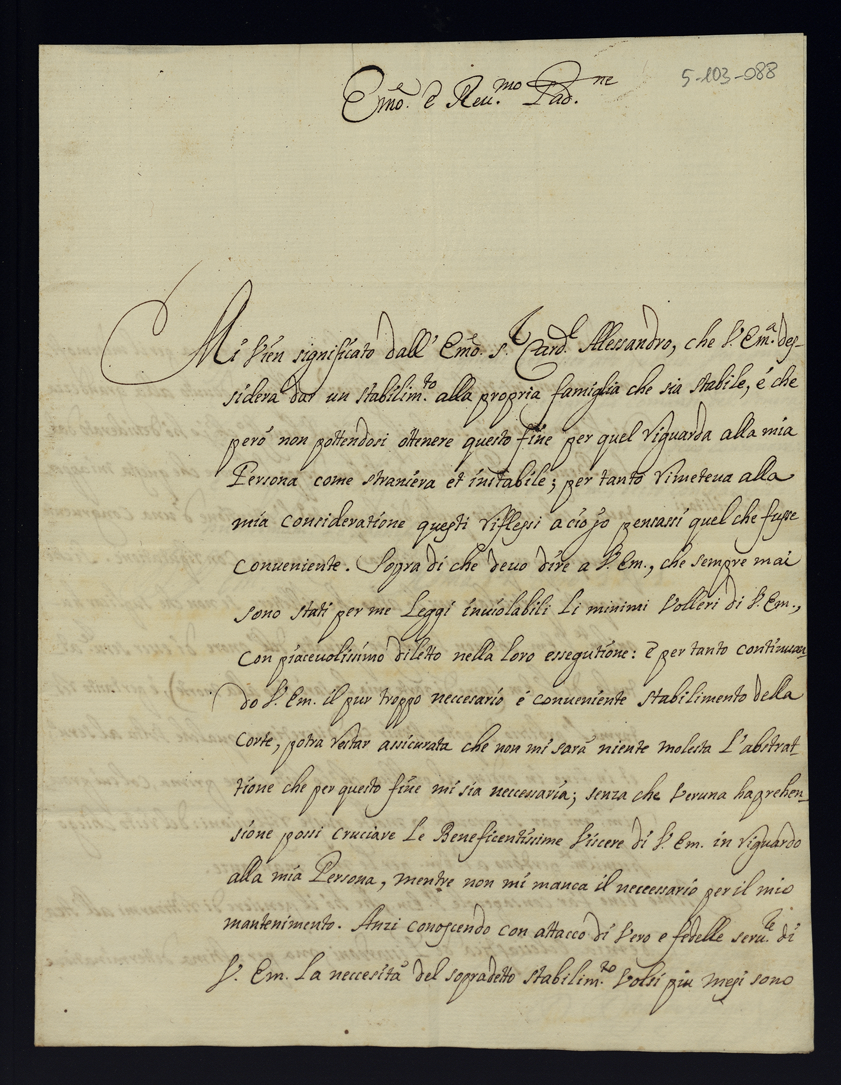 5-103-088
Emo. e Reu.mo Pad.ne
Mi Vien significato dall' Emo. s.r Card.l Alessandro, che V. Em.a des-
sidera dar un stabilim.to alla propria famiglia che sia stabile, é che
peró non pottendosi ottenere questo fine per quel riguarda alla mia
Persona come straniera et instabile; per tanto rimeteua alla
mia consideratione questi riflessi acio jo pensassi quel che fusse
conueniente. Sopra di che deuo dire a V. Em., che sempre mai
sono stati per me Leggi inuiolabili li minimi Volleri di V. Em.,
con piaceuolissimo diletto nella loro essegutione: E per tanto continuan-
do V. Em. il pur troppo neccesario é conueniente stabilimento della
Corte, potra restar assicurata che non mi sará niente molesta L'abstrat-
tione che per questo fine mi sia neccessaria; senza che Veruna haprehen-
sione possi cruciare Le Beneficentissime Viscere di V. Em. in riguardo
alla mia Persona, mentre non mi manca il neccessario per il mio
mantenimento. Anzi conoscendo con attacco di Vero e fedelle seru.re di
V. Em. La neccesitá del sopradetto stabilim.to Volsi piu mesi sono